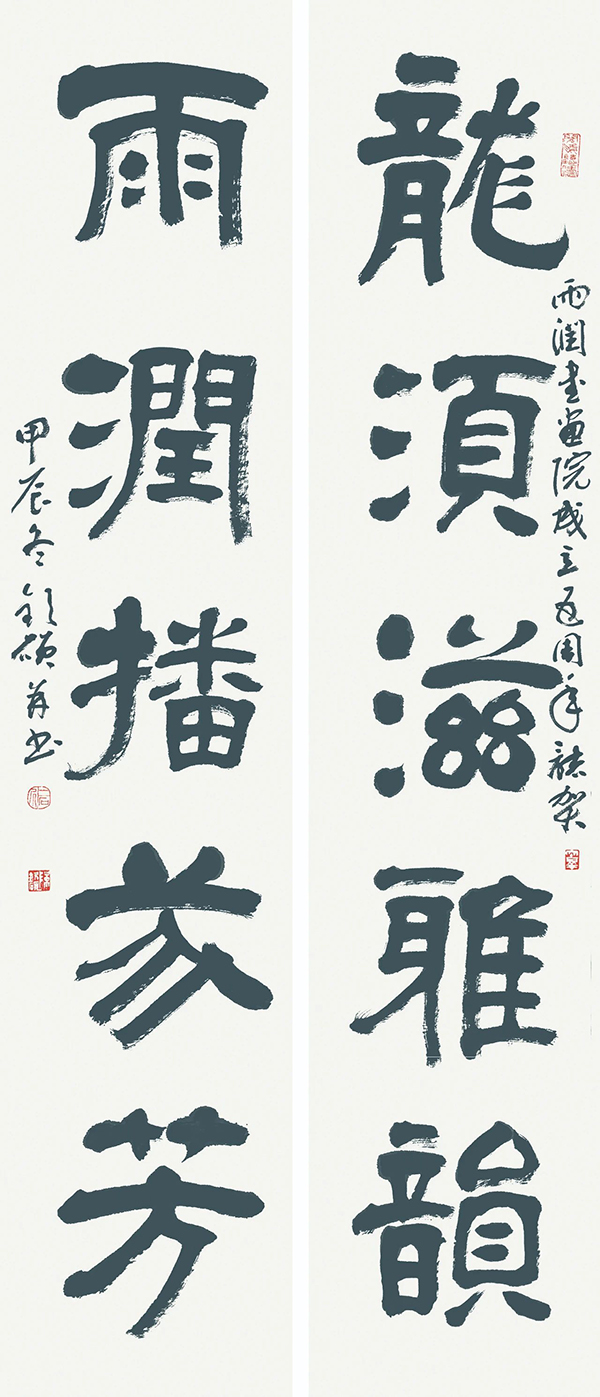 雨潤書畫院成立五周年誌賀
龍須滋雅韻
雨潤播芬芳
甲辰冬